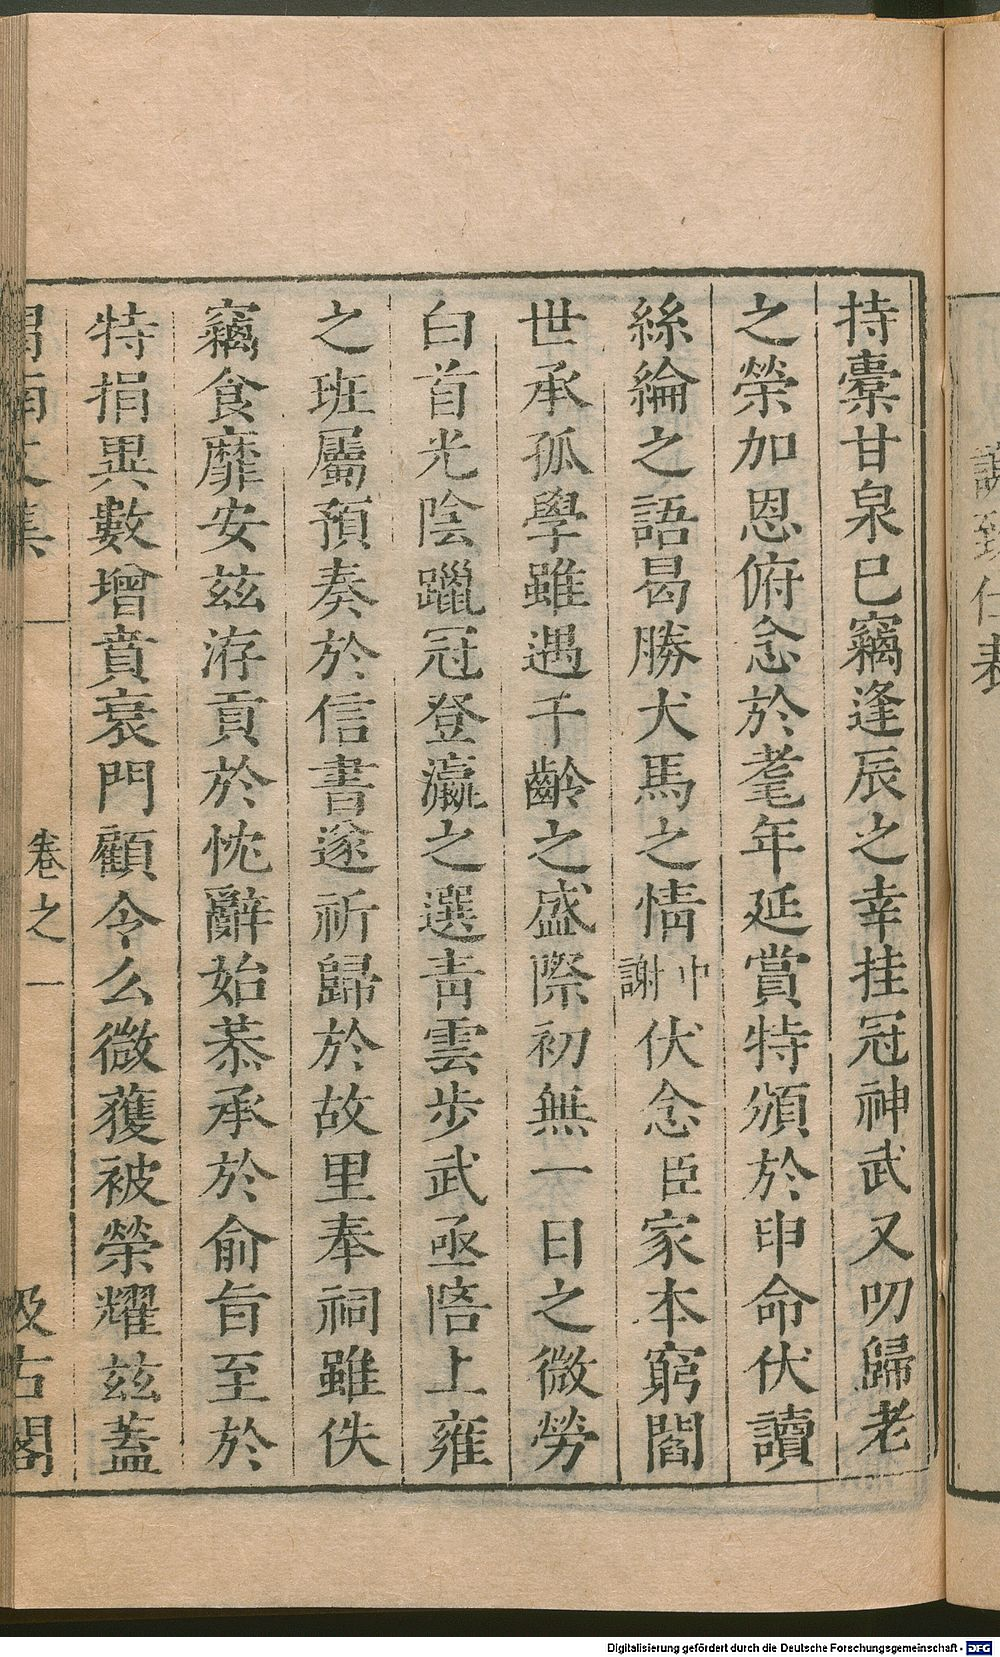 謝致仕表
持橐甘泉巳竊逢辰之幸挂冠神武又叨歸老
之榮加恩俯念於耄年延賞特頒於申命伏讀
絲綸之語曷勝犬馬之情中謝伏念臣家本窮閻
世承孤學雖遇千齡之盛際初無一日之微勞
白首光陰躐冠登瀛之選青雲步武亟陪上雍
之班屬預奏於信書遂祈歸於故里奉祠雖佚
竊食靡安兹洊貢於忱辭始恭承於俞旨至於
特捐異數增賁衰門顧令么微獲被榮耀兹蓋
渭南文集 卷之一 汲古閣
Digitalisierung gefördert durch die Deutsche Forschungsgemeinschaft - DFG